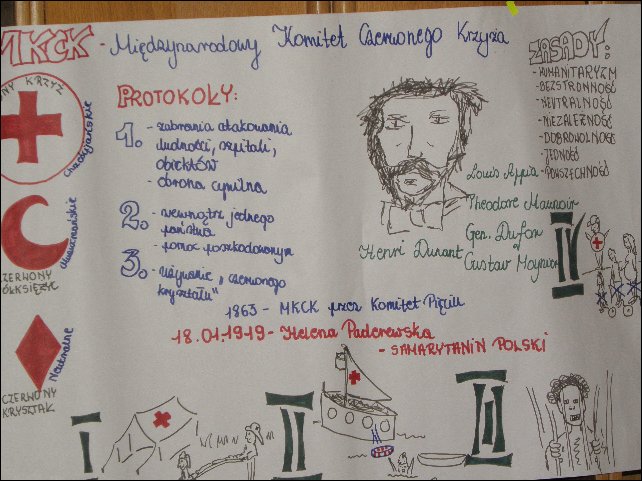 MKCK - Międzynarodowy Komitet Czerwonego Krzyża
NY KRZYŻ
Chrześcijańskie
CZERWONY
ÓŁKSIĘŻYC
Muzułmańskie
CZERWONY
KRYSZTAŁ
Neutralne
PROTOKOŁY:
1. - zabrania atakowania
ludności, szpitali,
obiektów
- obrona cywilna
2. - wewnątrz jednego
państwa
- pomoc poszkodowanym
3. - uznanie „czerwonego
kryształu"
Henri Dunant
Louis Appia
Theodore Maunoir
Gen. Dufour
Gustav Moynier
ZASADY:
- HUMANITARYZM
- BEZSTRONNOŚĆ
- NEUTRALNOŚĆ
- NIEZALEŻNOŚĆ
- DOBROWOLNOŚĆ
- JEDNOŚĆ
- POWSZECHNOŚĆ
1863 - MKCK przez Komitet Pięciu
18.01.1919 - Helena Paderewska
- SAMARYTANIN POLSKI
I
II
III
IV